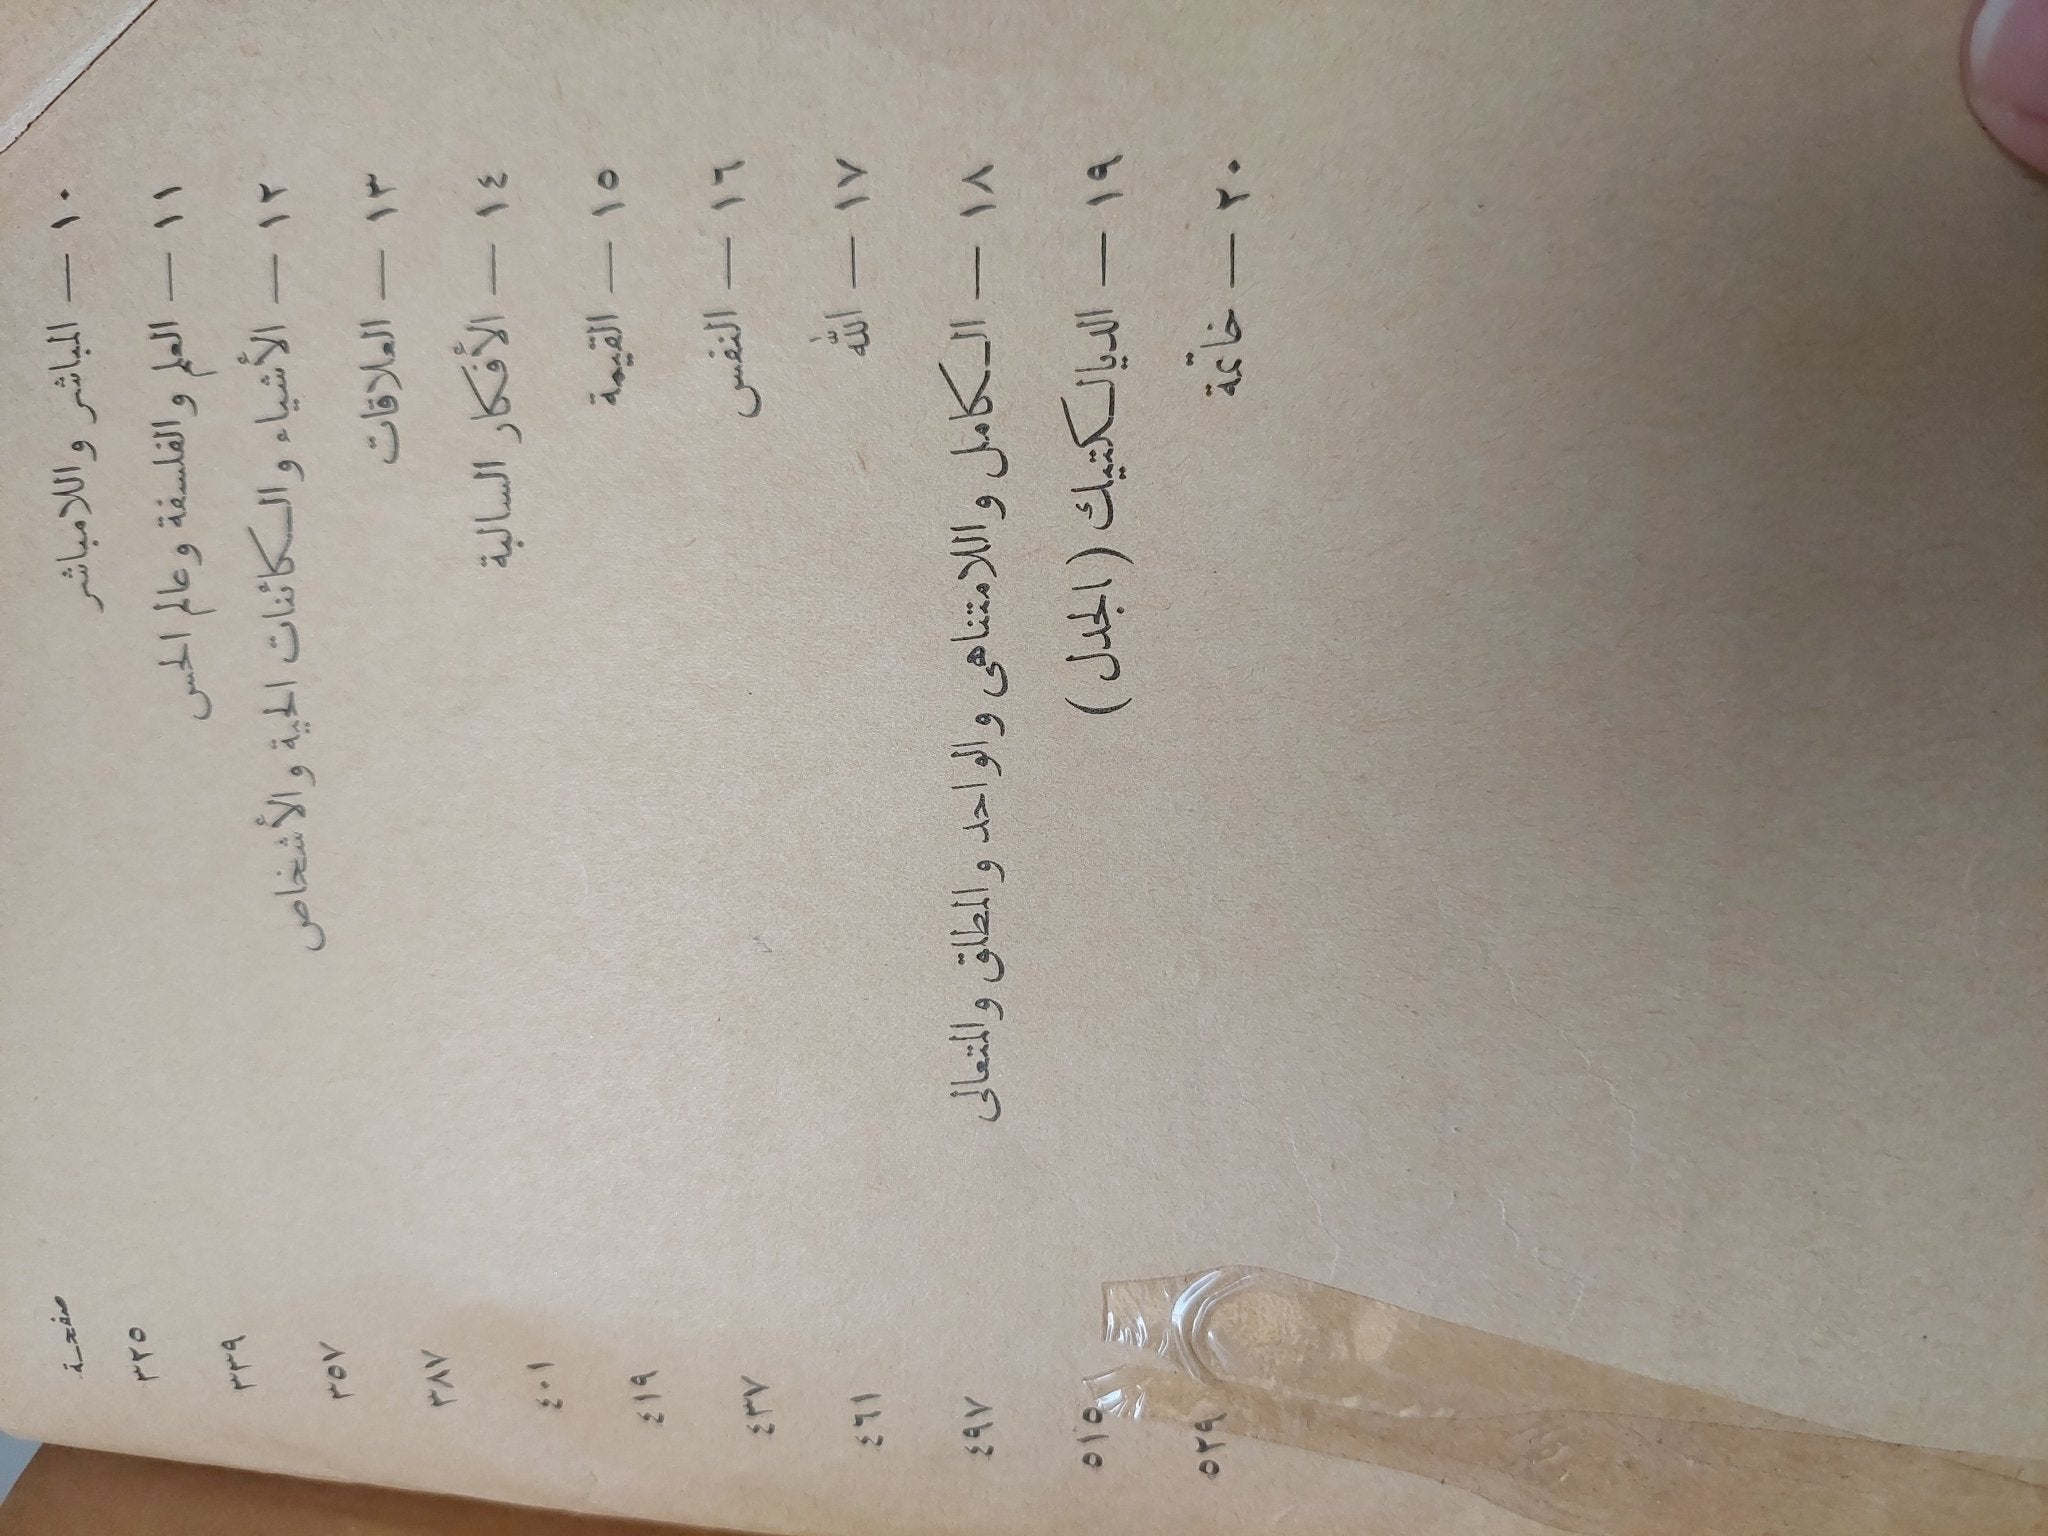 صفحة
١٠ — المباشر واللامباشر ٣٢٥
١١ — العلم والفلسفة وعالم الحس ٣٣٩
١٢ — الأشياء والكائنات الحية والأشخاص ٣٥٧
١٣ — العلاقات ٣٨٧
١٤ — الأفكار السالبة ٤٠١
١٥ — القيمة ٤١٩
١٦ — النفس ٤٣٧
١٧ — الله ٤٦١
١٨ — الكامل واللامتناهى والواحد والمطلق والمتعالى ٤٩٧
١٩ — الديالكتيك (الجدل) ٥١٥
٢٠ — خاتمة ٥٢٩